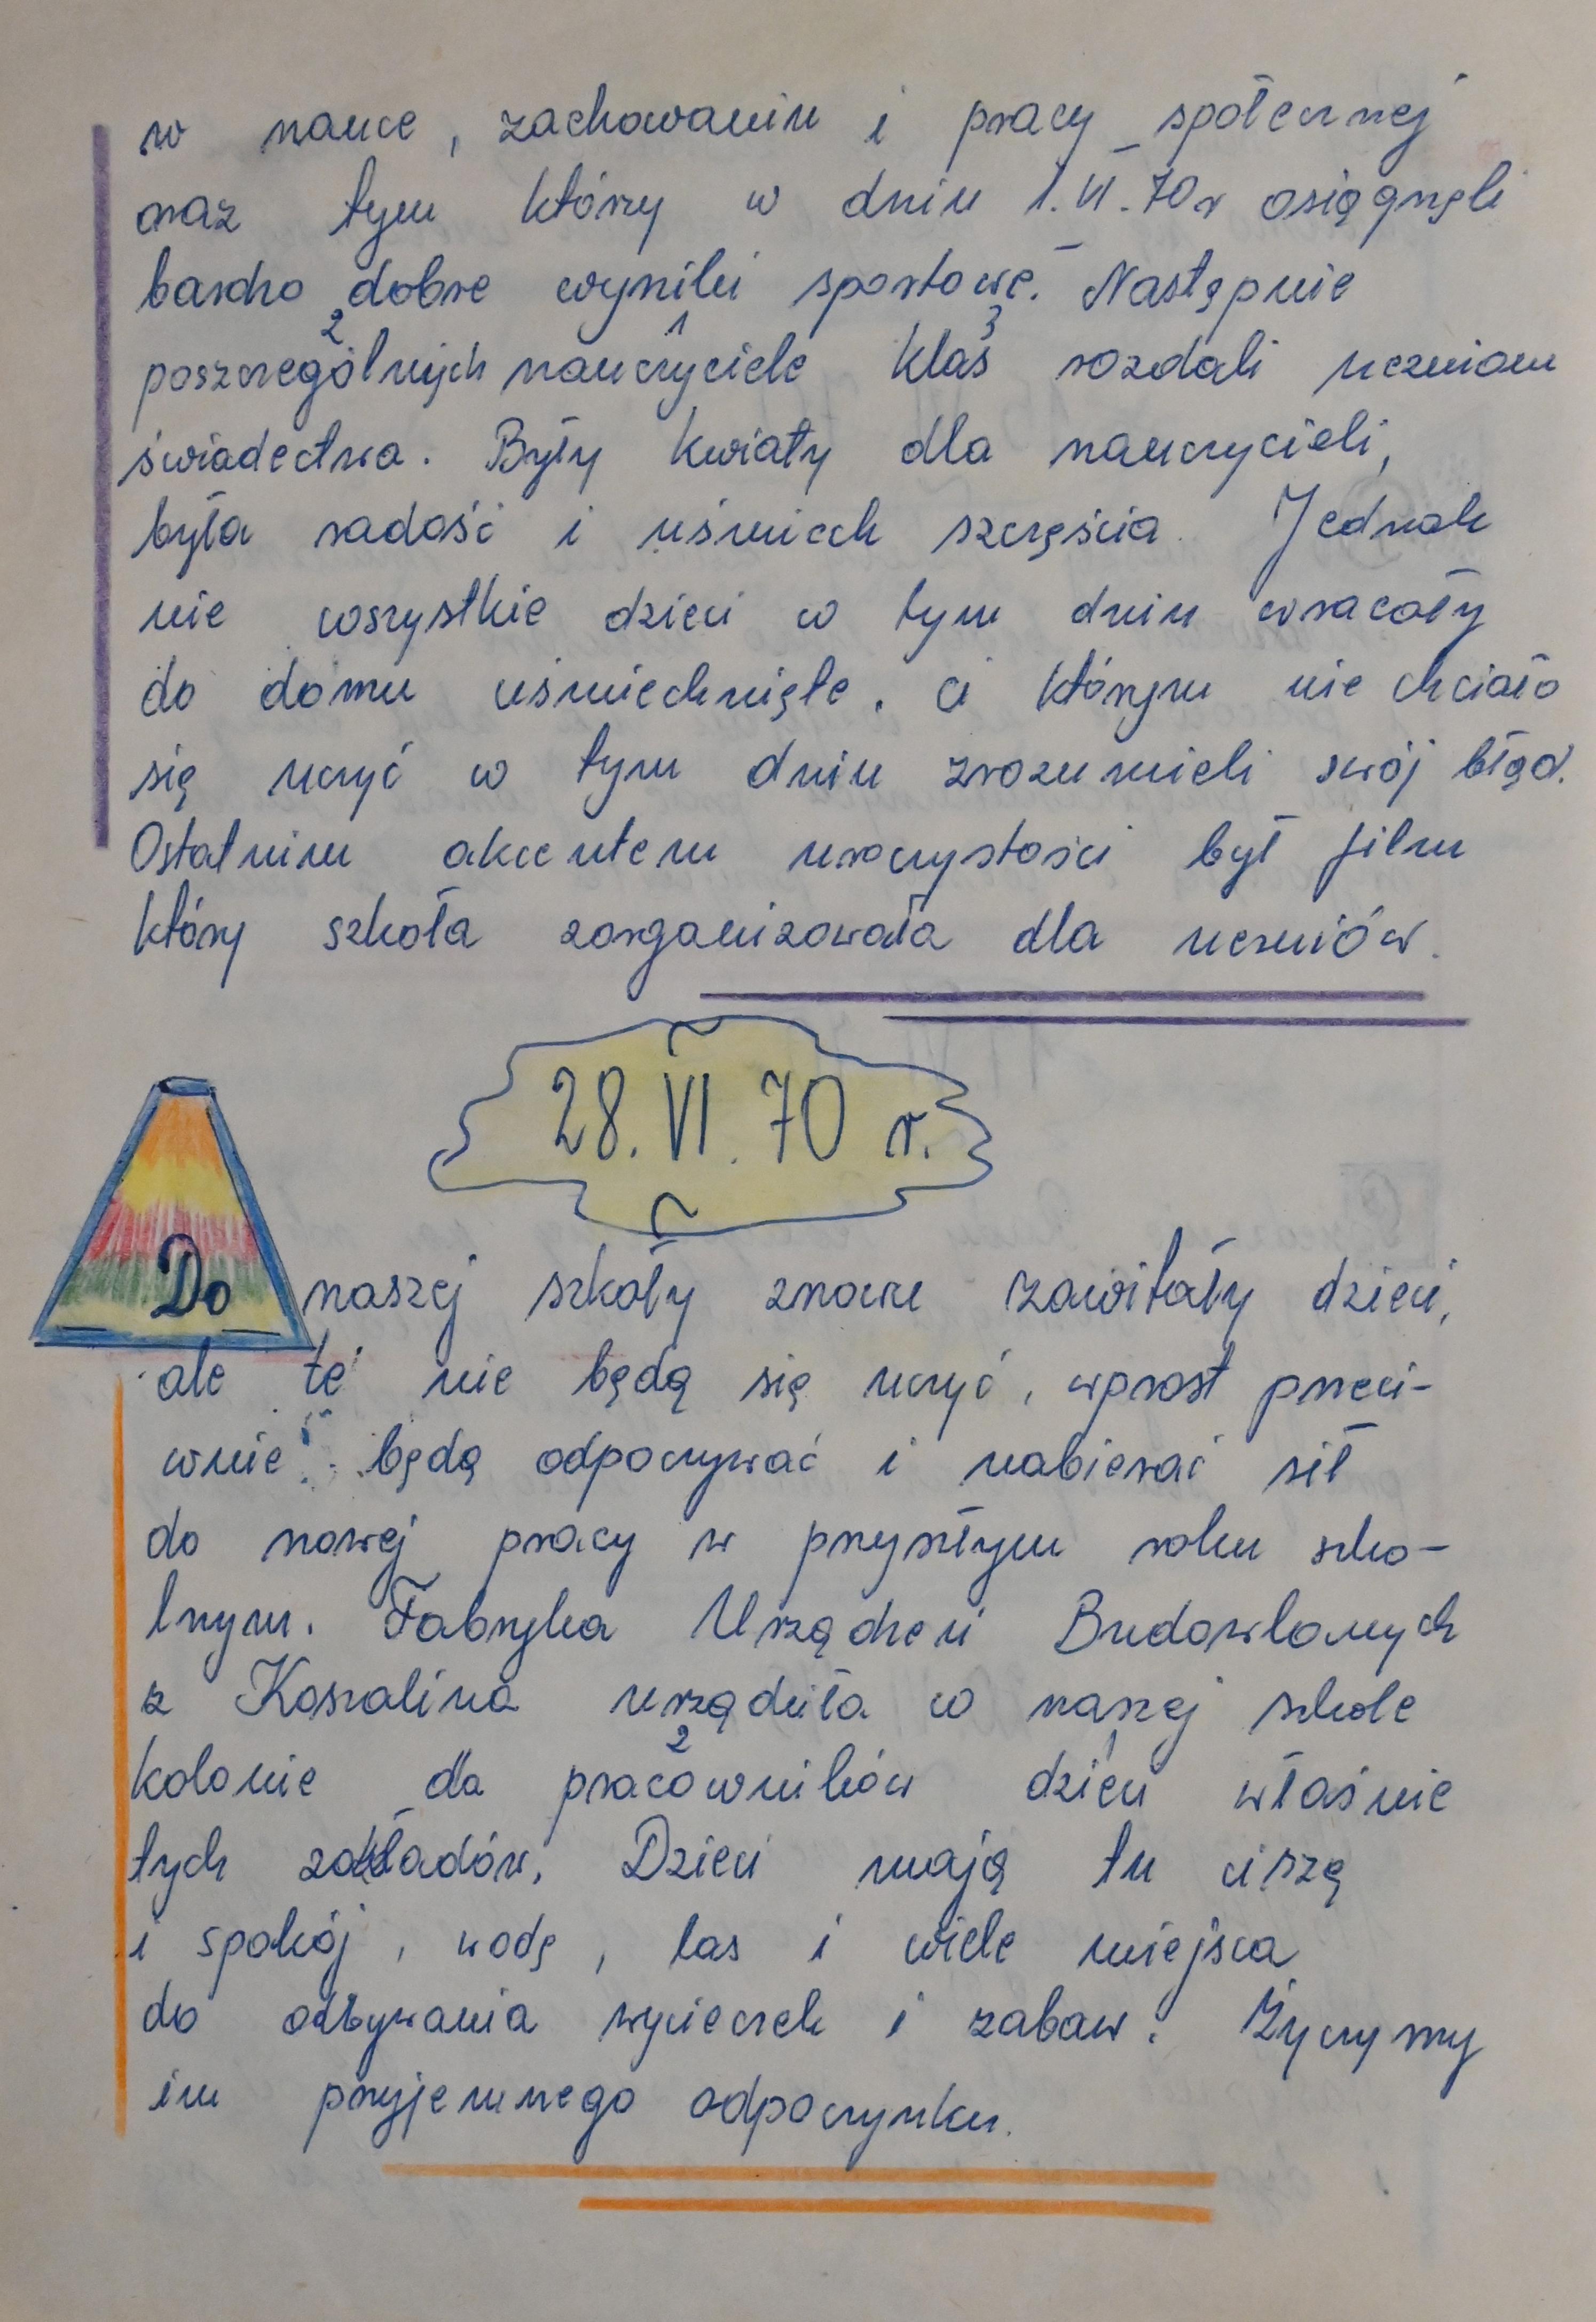 w nauce, zachowaniu i pracy społecznej
oraz tym którzy w dniu 1.VI.70r osiągnęli
bardzo dobre wyniki sportowe. Następnie
2 1 3
poszczególnych nauczyciele klas rozdali uczniom
świadectwa. Były kwiaty dla nauczycieli,
była radość i uśmiech szczęścia. Jednak
nie wszystkie dzieci w tym dniu wracały
do domu uśmiechnięte. ci którym nie chciało
się uczyć w tym dniu zrozumieli swój błąd.
Ostatnim akcentem uroczystości był film
który szkoła zorganizowała dla uczniów.
28.VI.70 r.
Do naszej szkoły znowu zawitały dzieci,
ale te nie będą się uczyć, wprost przeci-
wnie: będą odpoczywać i nabierać sił
do nowej pracy w przyszłym roku szko-
lnym. Fabryka Urządzeń Budowlanych
z Koszalina urządziła w naszej szkole
2 1
kolonie dla pracowników dzieci właśnie
tych zakładów. Dzieci mają tu ciszę
i spokój, wodę, las i wiele miejsca
do odbywania wycieczek i zabaw. Życzymy
im przyjemnego odpoczynku.